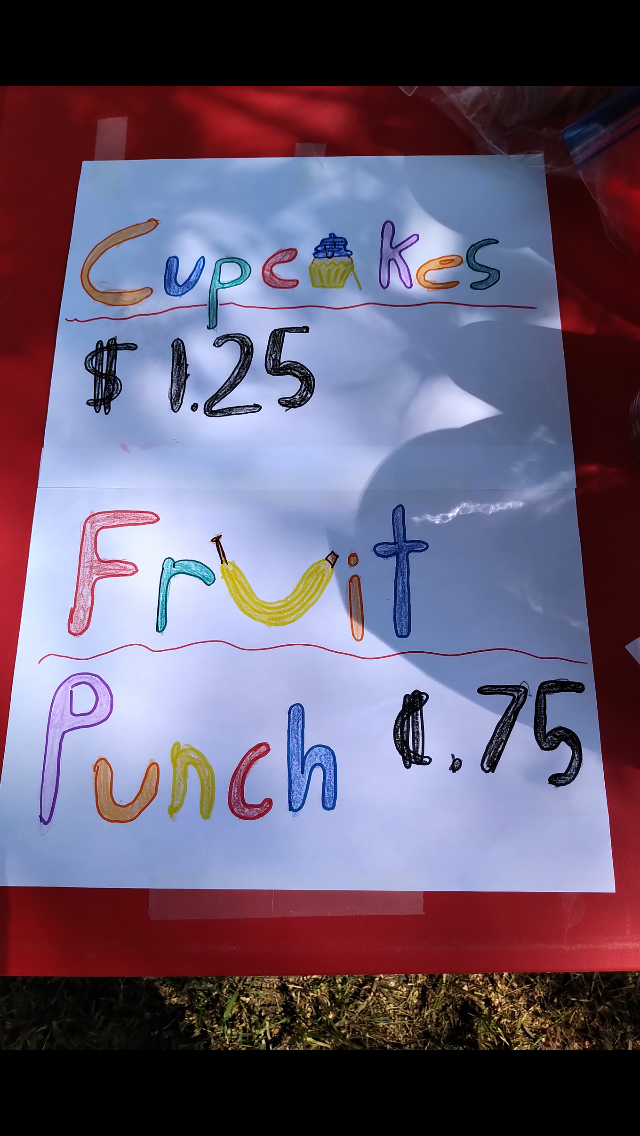 Cupcakes
$ 1.25
Fruit
Punch ¢.75